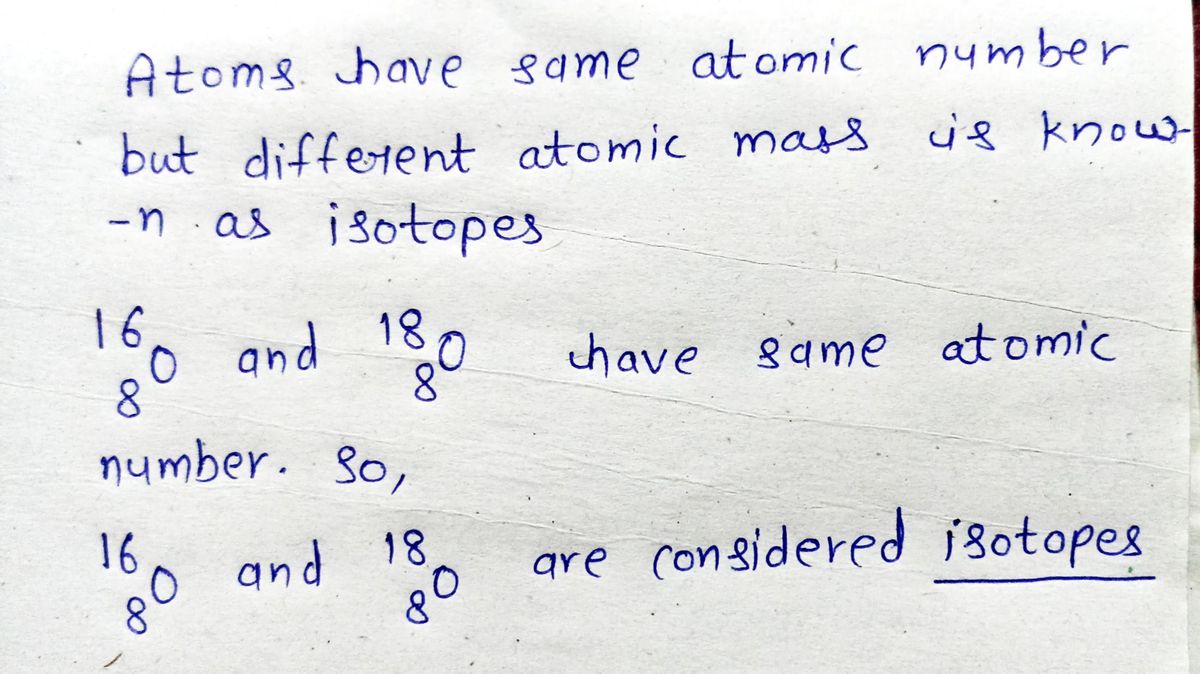 Atoms have same atomic number
but different atomic mass is know-
-n as isotopes
¹⁶₈O and ¹⁸₈O have same atomic
number. So,
¹⁶₈O and ¹⁸₈O are considered isotopes